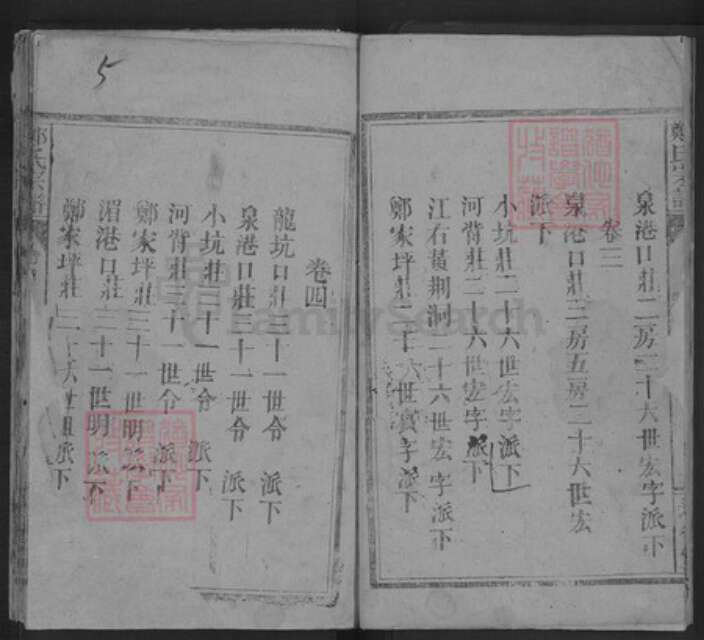 泉港口莊二房二十六世宏字派下
卷三
泉港口莊三房五房二十六世宏
派下
小坑莊二十六世宏字派下
河背莊二十六世宏字派下
江右黃荆洞二十六世宏字派下
鄭家坪莊二十六世賓字派下
卷四
龍坑口莊三十一世令 派下
泉港口莊三十一世令 派下
小坑莊三十一世令 派下
河背莊三十一世令 派下
鄭家坪莊三十一世明 派下
湄港口莊三十一世明 派下
鄭家坪莊三十六世 派下
5
FamilySearch